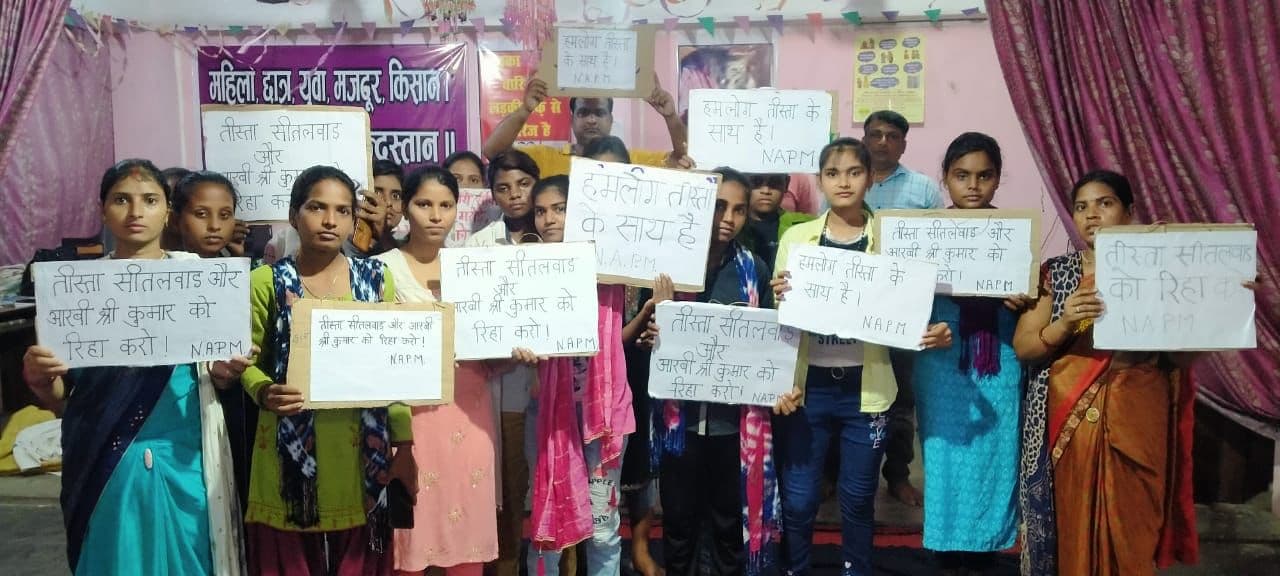 महिला, छात्र, युवा, मजदूर, किसान।
हमलोग तीस्ता
के साथ है।
N.A.P.M.
हमलोग तीस्ता के
साथ है।
NAPM
तीस्ता सीतलवाड
और
आरबी श्री कुमार को
हमलोग तीस्ता
के साथ है
N.A.P.M.
तीस्ता सीतलवाड और
आरबी श्री कुमार को
रिहा करो! NAPM
तीस्ता सीतलवाड और आरबी
श्री कुमार को रिहा करो!
NAPM.
तीस्ता सीतलवाड
और
आरबी श्री कुमार को
रिहा करो! NAPM
तीस्ता सीतलवाड
और
आरबी श्री कुमार को
रिहा करो! NAPM
हमलोग तीस्ता के
साथ है।
NAPM
तीस्ता सीतलवाड और
आरबी श्री कुमार को
रिहा करो! NAPM
तीस्ता सीतलवाड
को रिहा
NAPM